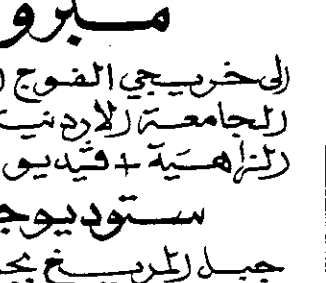 مبرو
إلى خريجي الفوج ا
الجامعة الاردنية
الزاهية + فيديو
ستوديو ج
جبل المريخ بج